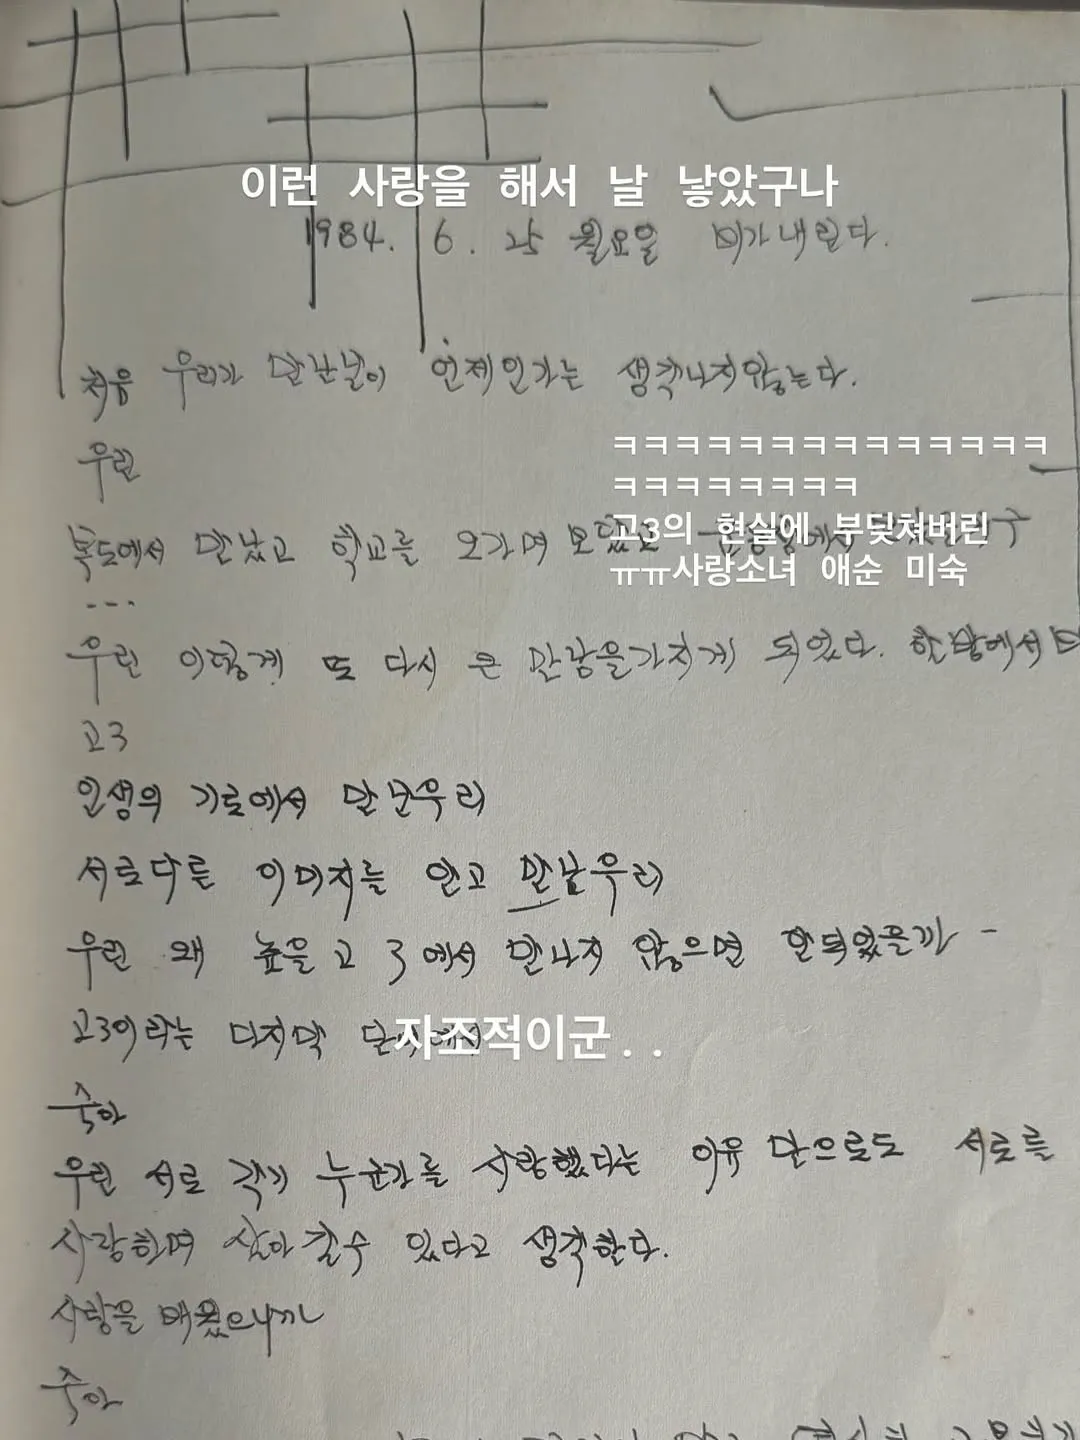 이런 사랑을 해서 날 낳았구나
1984. 6. 25 월요일 비가내린다.
처음 우리가 만난날이 언제인가는 생각나지않는다.
우린
ㅋㅋㅋㅋㅋㅋㅋㅋㅋㅋㅋㅋㅋㅋ
ㅋㅋㅋㅋㅋㅋㅋㅋ
고3의 현실에 부딪쳐버린
ㅠㅠ사랑소녀 애순 미숙
복도에서 만났고 학교를 오가며
...
우린 이렇게 또 다시 큰 만남을가지게 되었다. 한반에서
고3
인생의 기로에서 만난우리
서로다른 이미지를 안고 만난우리
우린 왜 높을고 3에서 만나지 않으면 안되었을까 -
고3이라는 마지막
자조적이군..
숙아
우린 서로 각기 누군가를 사랑했다는 이유 만으로도 서로를
사랑하며 살아갈수 있다고 생각한다.
사랑을 배웠으니까
숙아